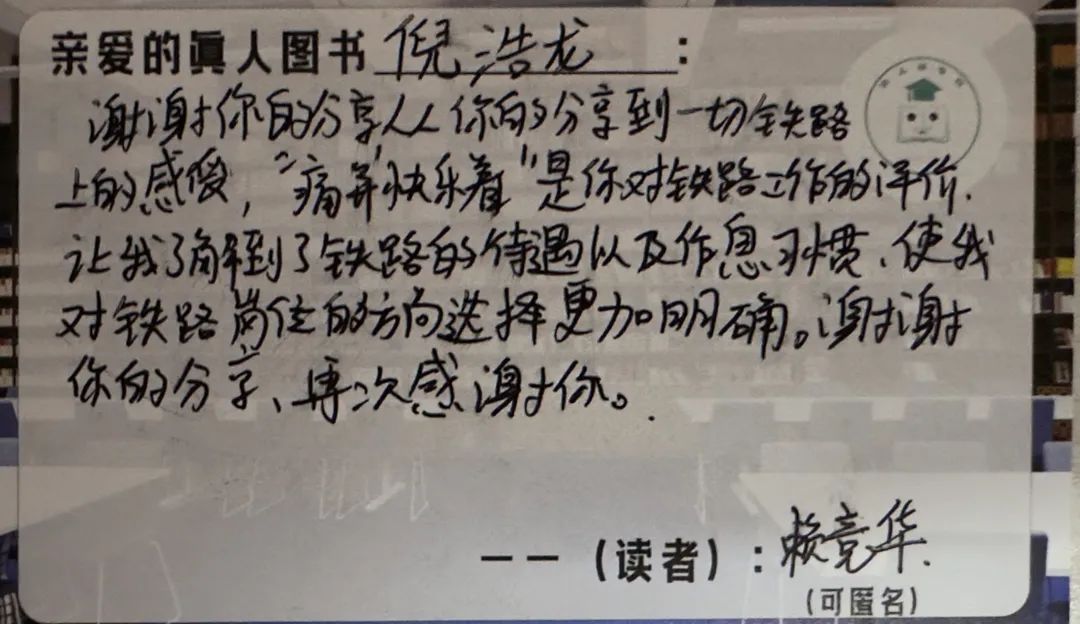 亲爱的真人图书 倪浩龙 :
谢谢你的分享从你的分享到一切铁路
上的感受，“痛并快乐着”是你对铁路工作的评价.
让我了解到了铁路的待遇以及作息习惯、使我
对铁路岗位的方向选择更加明确。谢谢
你的分享、再次感谢你。
一一（读者）：赖竞华.
（可匿名）